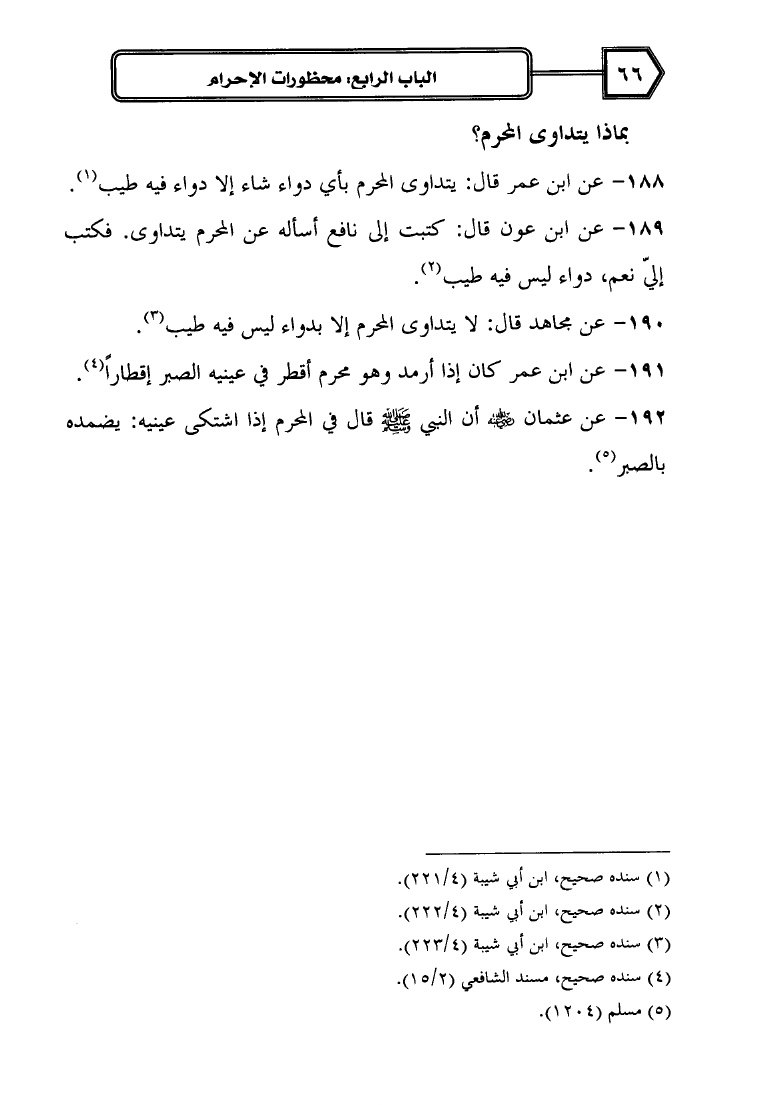 ٦٦
الباب الرابع: محظورات الإحرام
بماذا يتداوى المحرم؟
١٨٨- عن ابن عمر قال: يتداوى المحرم بأي دواء شاء إلا دواء فيه طيب(١).
١٨٩- عن ابن عون قال: كتبت إلى نافع أسأله عن المحرم يتداوى. فكتب
إليّ نعم، دواء ليس فيه طيب(٢).
١٩٠- عن مجاهد قال: لا يتداوى المحرم إلا بدواء ليس فيه طيب(٣).
١٩١- عن ابن عمر كان إذا أرمد وهو محرم أقطر في عينيه الصبر إقطاراً(٤).
١٩٢- عن عثمان رضي الله عنه أن النبي ﷺ قال في المحرم إذا اشتكى عينيه: يضمده
بالصبر(٥).
(١) سنده صحيح، ابن أبي شيبة (٢٢١/٤).
(٢) سنده صحيح، ابن أبي شيبة (٢٢٢/٤).
(٣) سنده صحيح، ابن أبي شيبة (٢٢٣/٤).
(٤) سنده صحيح، مسند الشافعي (١٥/٢).
(٥) مسلم (١٢٠٤).